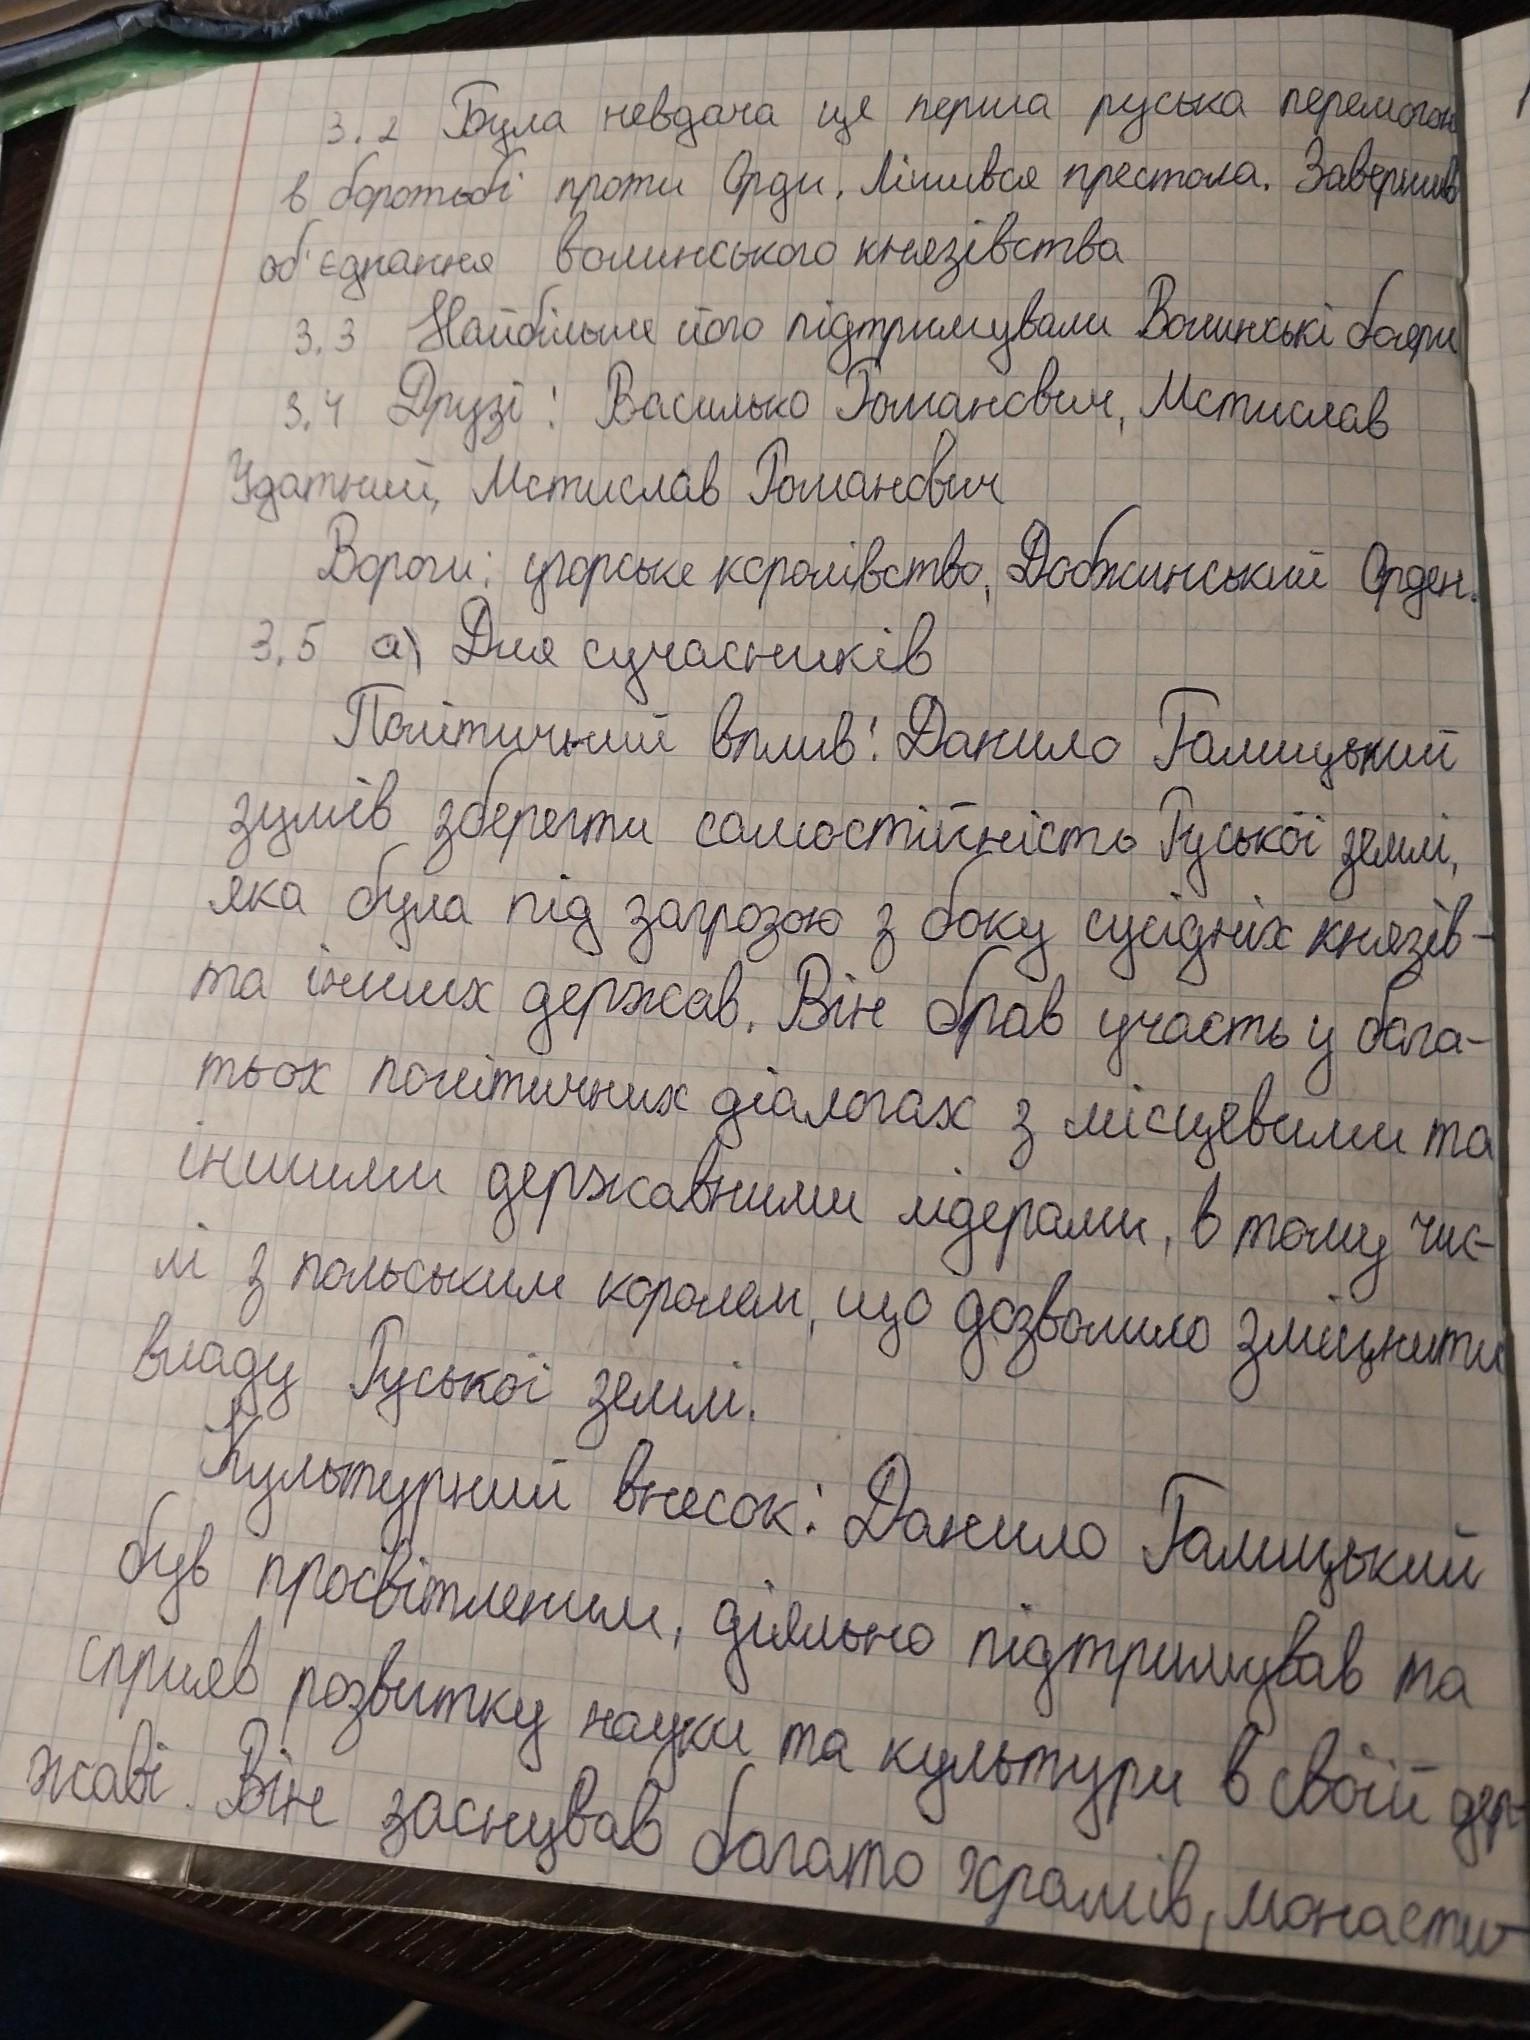 3.2 Була невдача це перша руська перемогою
в боротьбі проти Орди. Лішився престола. Завершив
об'єднання волинського князівства
3.3 Найбільше його підтримували Волинські бояри
3.4 Друзі: Василько Романович, Мстислав
Удатний, Мстислав Романович
Вороги: угорське королівство, Добжинський Орден.
3.5 а) Для сучасників
Політичний вплив: Данило Галицький
зумів зберегти самостійність Руської землі,
яка була під загрозою з боку сусідніх князів-
та інших держав. Він брав участь у бага-
тьох політичних діалогах з місцевими та
іншими державними лідерами, в тому чис-
лі з польським королем, що дозволило зміцнити
владу Руської землі.
Культурний внесок: Данило Галицький
був просвітленим, діяльно підтримував та
сприяв розвитку науки та культури в своїй дер-
жаві. Він заснував багато храмів, монасти-